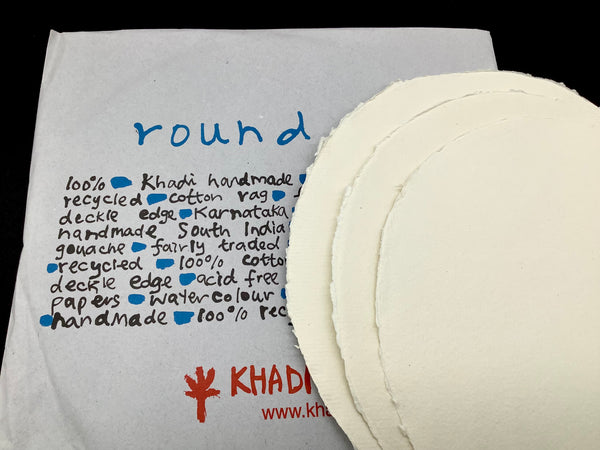 round
100% Khadi handmade
recycled cotton rag
deckle edge Karnataka
handmade South India
gouache fairly traded
recycled 100% cotto
deckle edge acid free
papers watercolour
handmade 100% rec
KHADI
www.kha